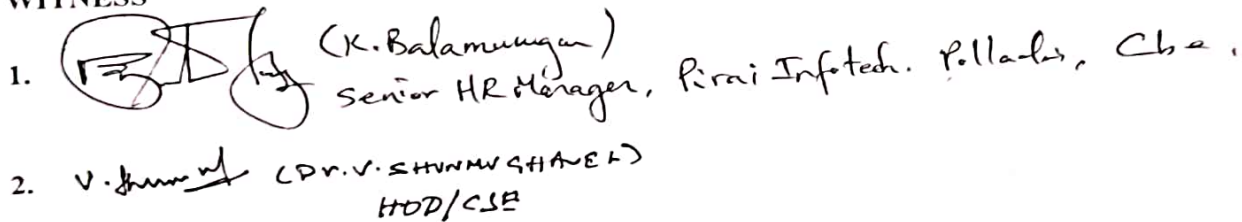 WITNESS
1. (K. Balamurugan)
Senior HR Manager, Pirai Infotech. Pollachi, Cbe.
2. V. (Dr. V. SHUNMUGHAVEL)
HOD/CSE